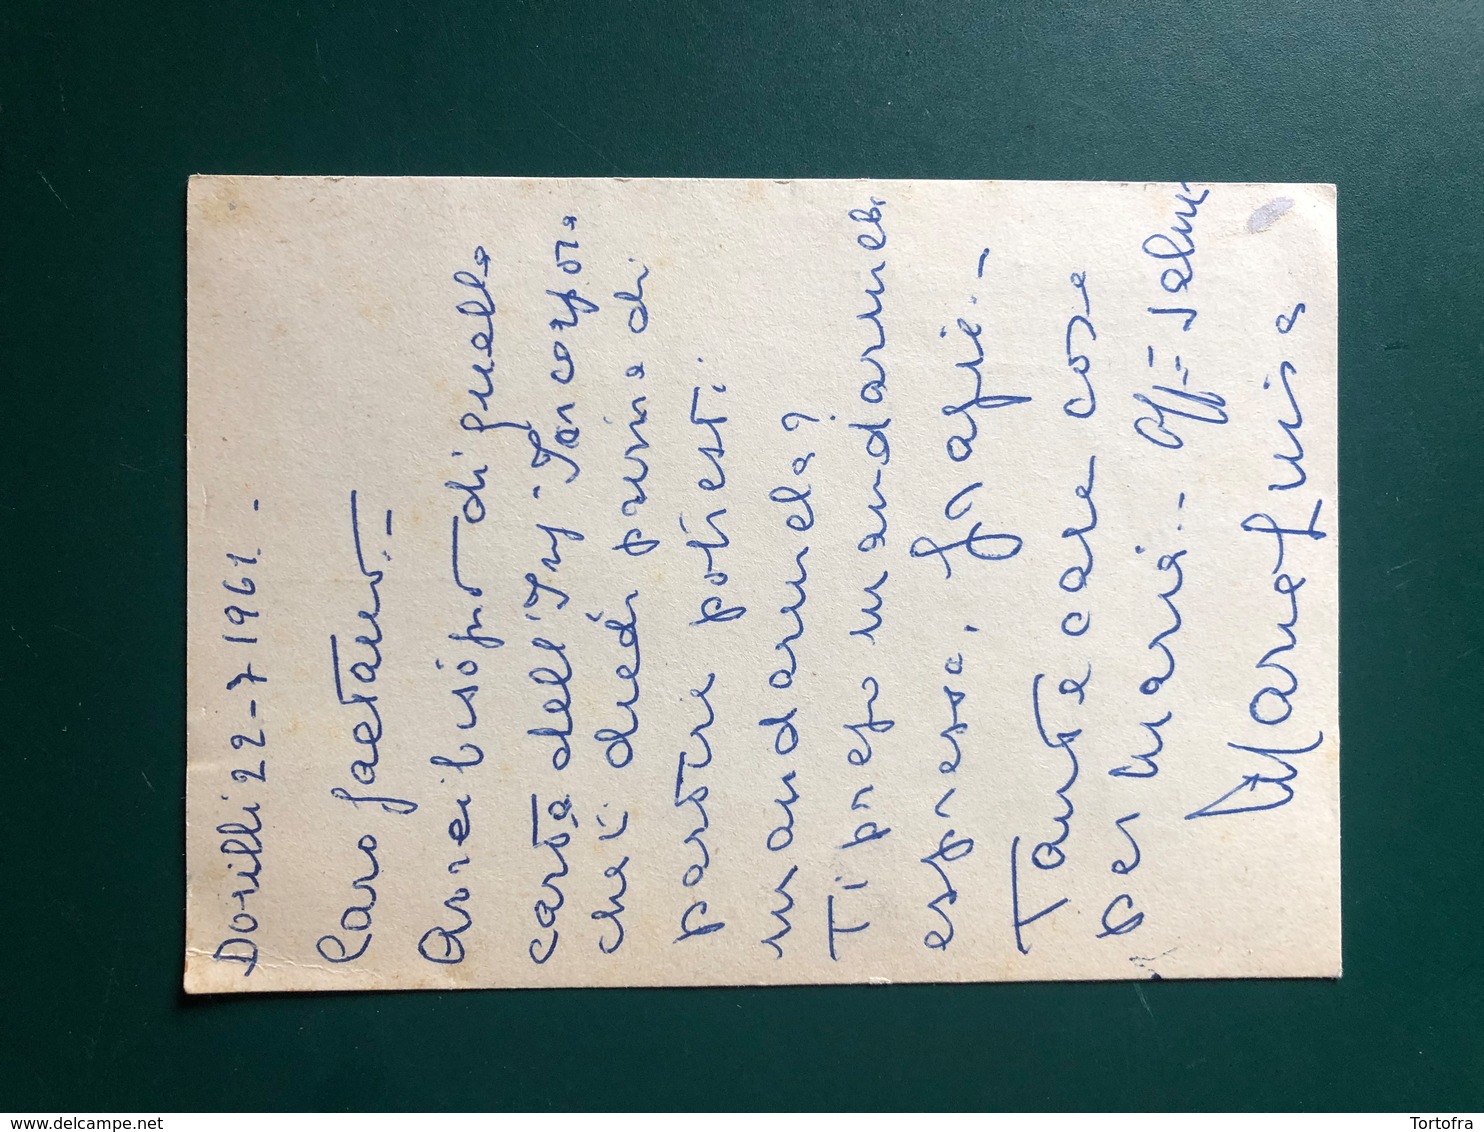 Dorilli 22-7 1961.-
Caro Gaetano.-
Avrei bisogno di quella
carta dell'Ing.
che ti diedi prima di
partire potresti
mandarmela?
Ti prego mandarmela
espresso. Grazie.-
Tante care cose
per Maria.- Aff. Saluti
Maria Luisa
Tortofra